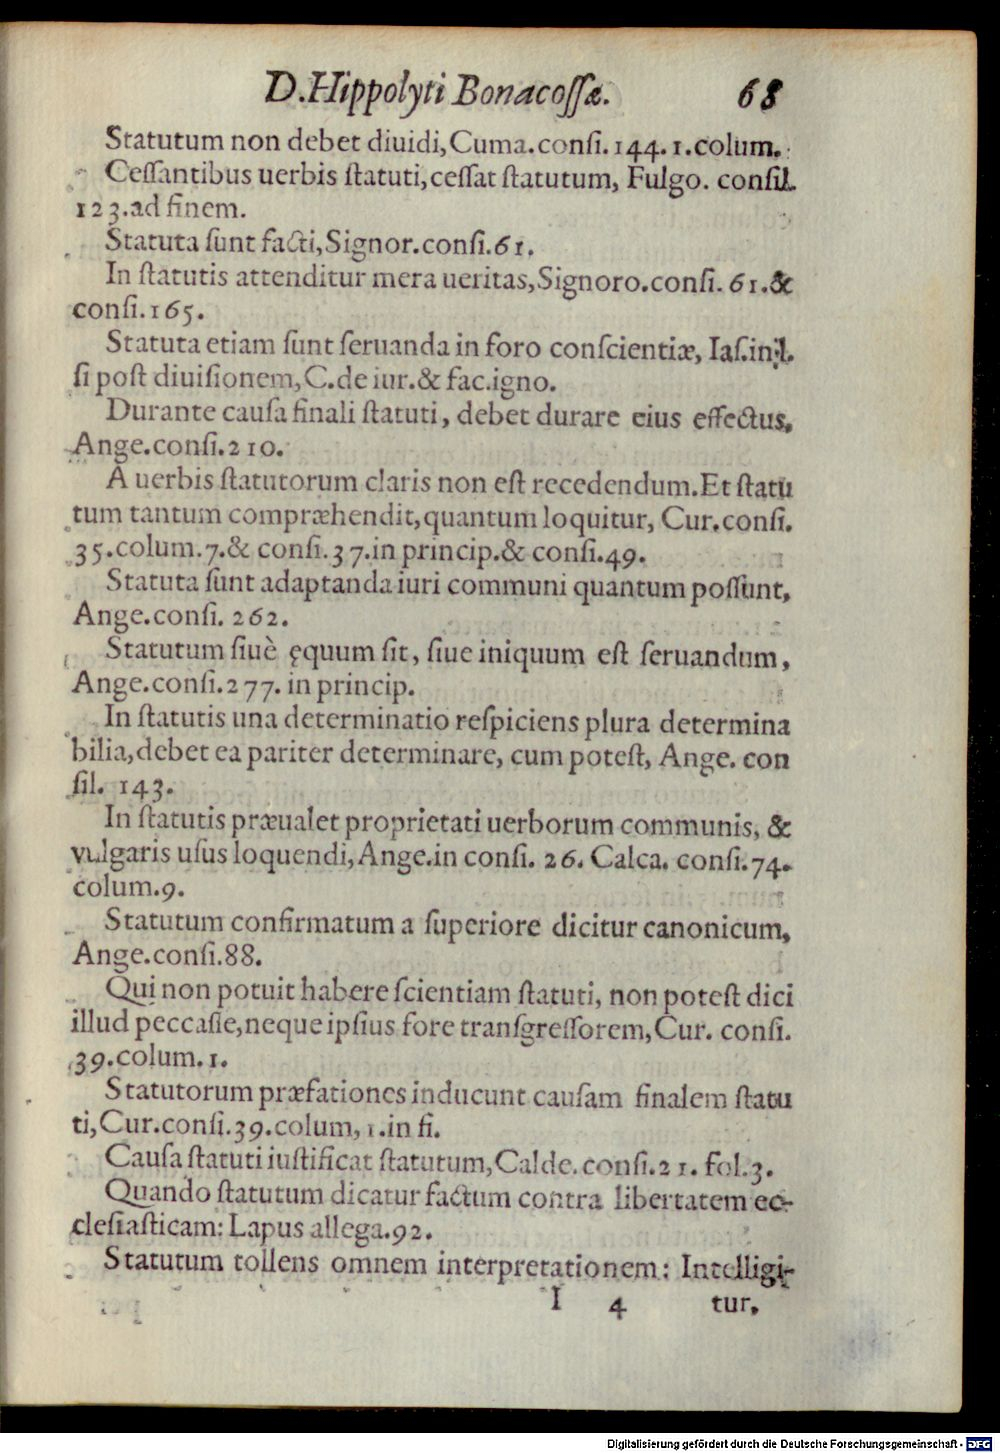 D.Hippolyti Bonacossæ. 68
Statutum non debet diuidi,Cuma.consi.144.1.colum.
Cessantibus uerbis statuti,cessat statutum, Fulgo. consil.
123.ad finem.
Statuta sunt facti,Signor.consi.61.
In statutis attenditur mera ueritas,Signoro.consi. 61.&
consi.165.
Statuta etiam sunt seruanda in foro conscientiæ, Ias.in l.
si post diuisionem,C.de iur.& fac.igno.
Durante causa finali statuti, debet durare eius effectus,
Ange.consi.210.
A uerbis statutorum claris non est recedendum.Et statu
tum tantum compræhendit,quantum loquitur, Cur.consi.
35.colum.7.& consi.37.in princip.& consi.49.
Statuta sunt adaptanda iuri communi quantum possunt,
Ange.consi. 262.
Statutum siuè ęquum sit, siue iniquum est seruandum,
Ange.consi.277. in princip.
In statutis una determinatio respiciens plura determina
bilia,debet ea pariter determinare, cum potest, Ange. con
sil. 143.
In statutis præualet proprietati uerborum communis, &
vulgaris usus loquendi,Ange.in consi. 26. Calca. consi.74.
colum.9.
Statutum confirmatum a superiore dicitur canonicum,
Ange.consi.88.
Qui non potuit habere scientiam statuti, non potest dici
illud peccasse,neque ipsius fore transgressorem,Cur. consi.
39.colum.1.
Statutorum præfationes inducunt causam finalem statu
ti,Cur.consi.39.colum,1.in fi.
Causa statuti iustificat statutum,Calde.consi.21. fol.3.
Quando statutum dicatur factum contra libertatem ec-
clesiasticam: Lapus allega.92.
Statutum tollens omnem interpretationem: Intelligi-
I 4 tur,
Digitalisierung gefördert durch die Deutsche Forschungsgemeinschaft - DFG